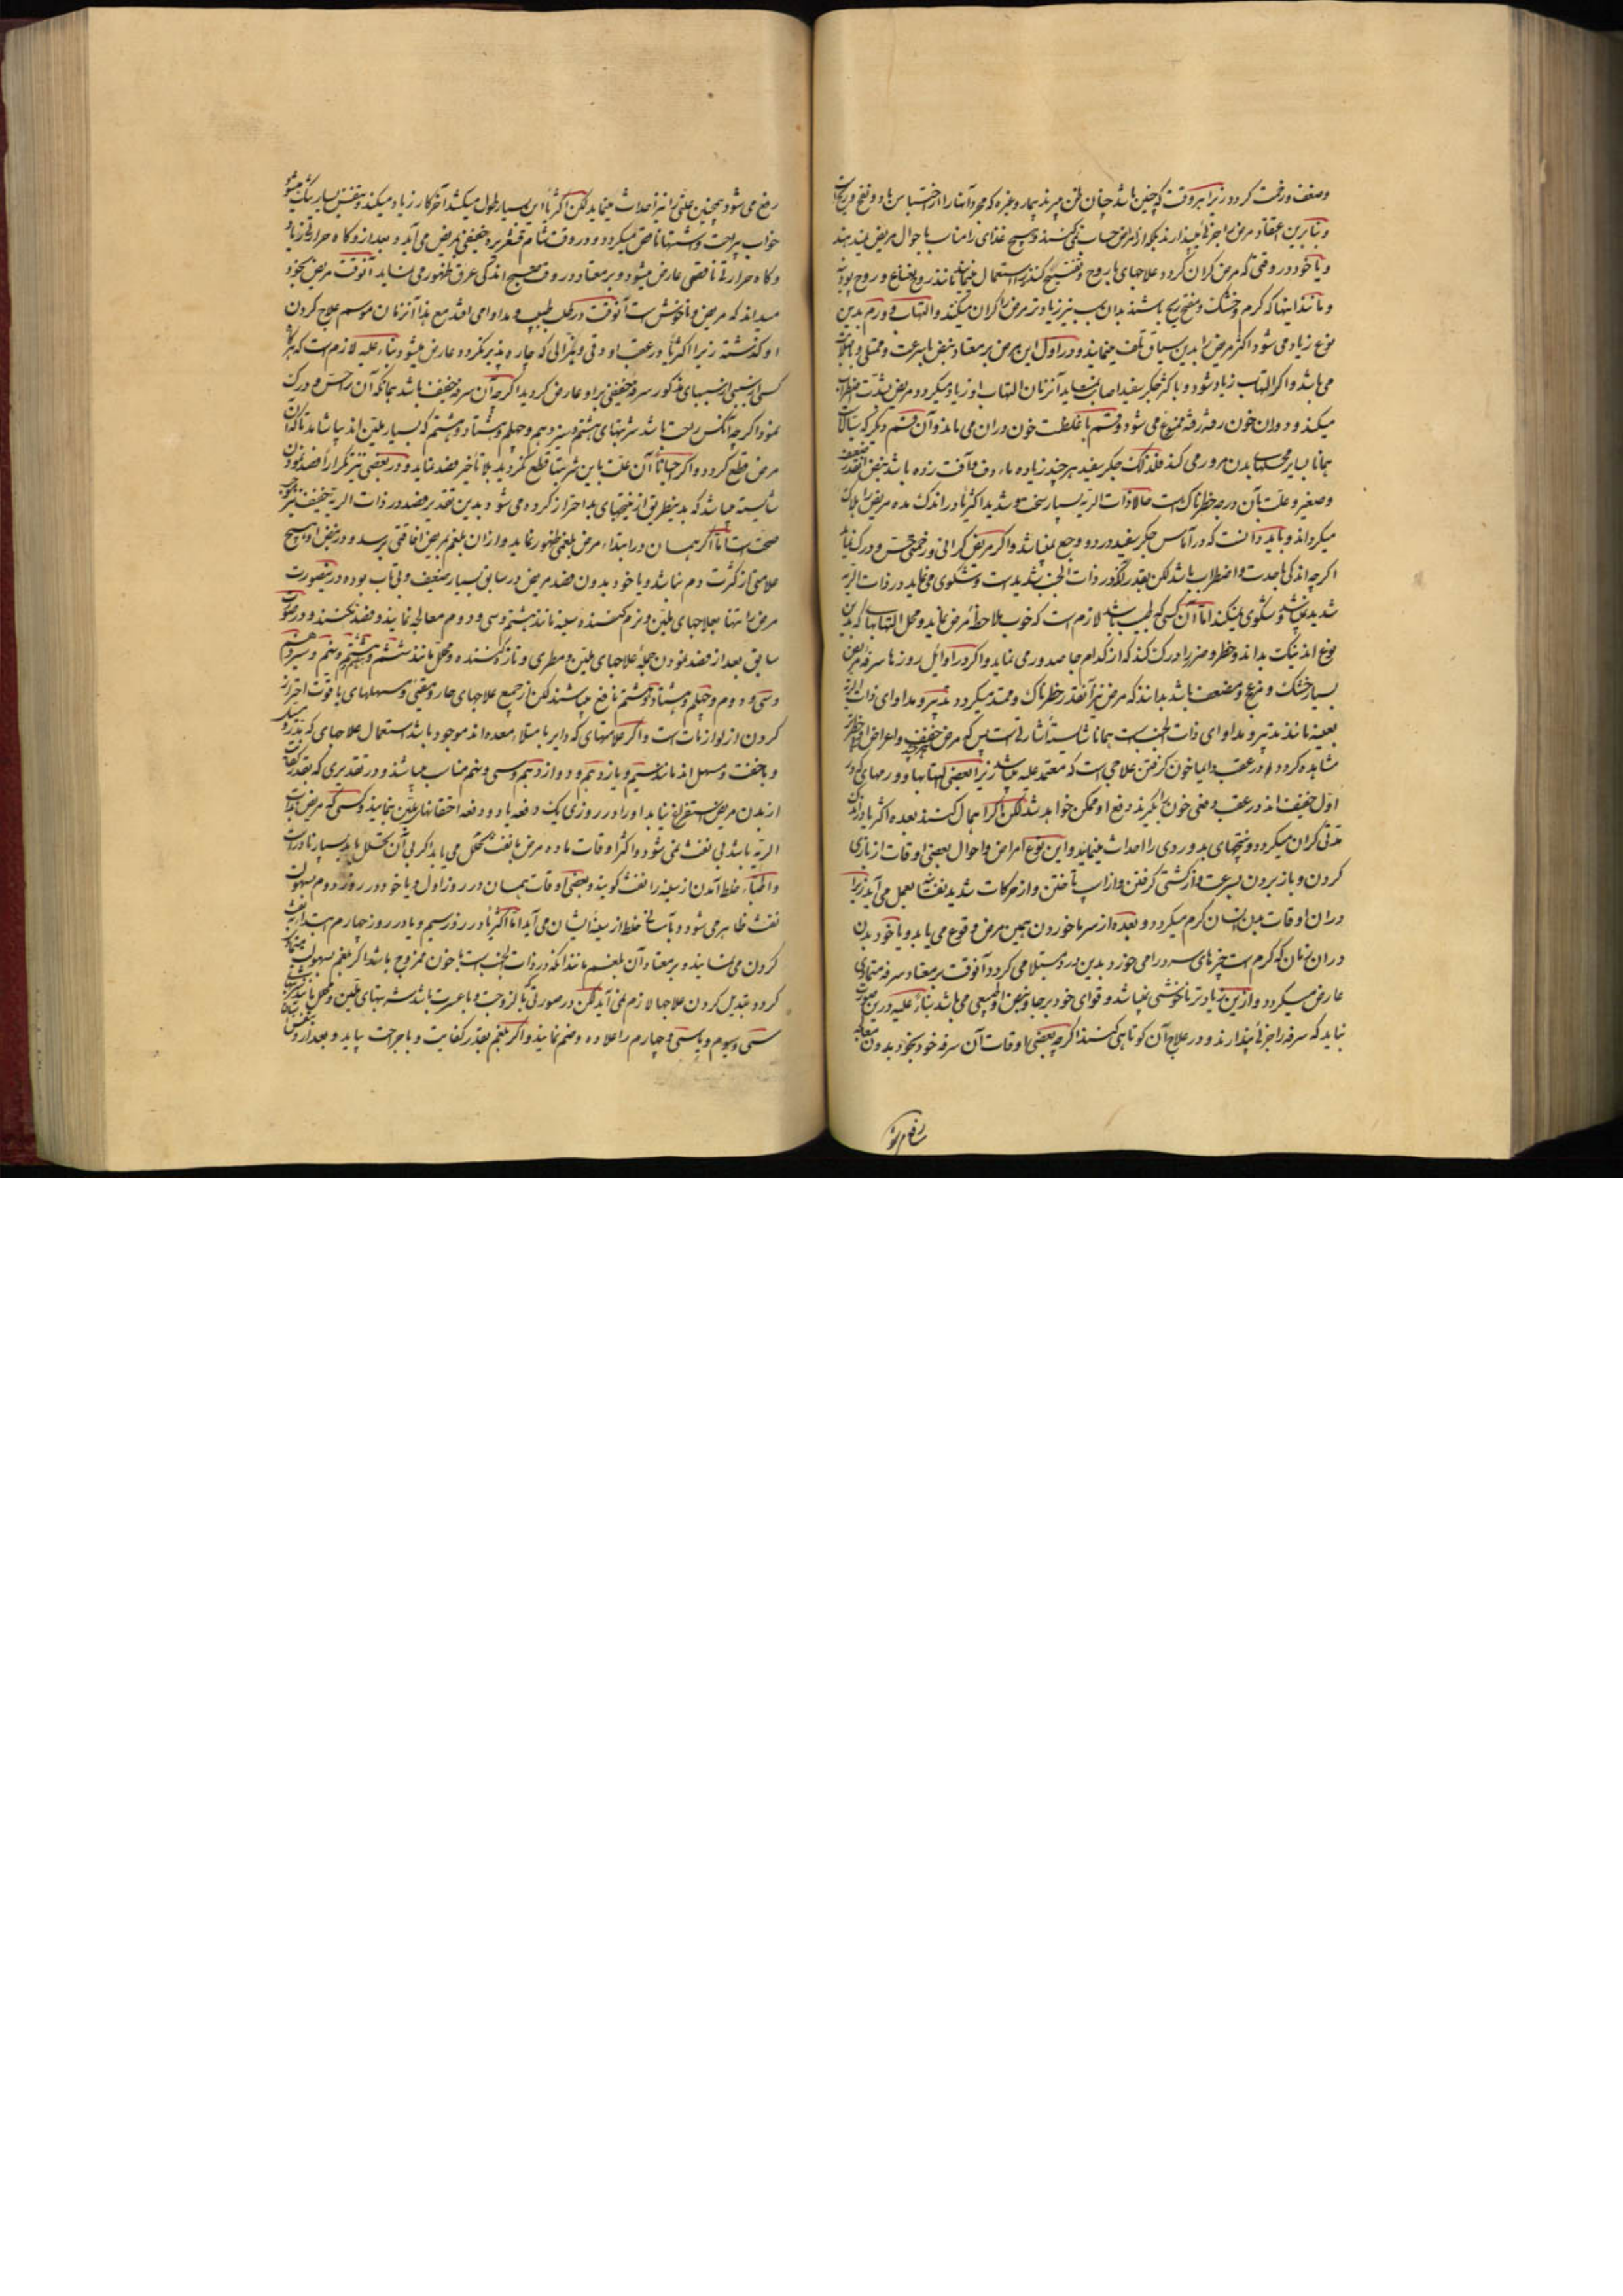 وضعف و رخمت کردد زیرا هر وقت که چنین باشد چنان ظن میبرند بیمار و غیره که مجرد آنها را از احتباس باد و نفخ و ریح است
و بنابرین اعتقاد مرض را جزئی میپندارند بلکه از امراض حساب نمی کنند و هیچ غذای را مناسب باحوال مریض نمیدهند
و یا خود در وقتی که مرض کران کردد علاجهای با روح و تفتیح کننده را استعمال مینمایند مانند روح نعناع و روح پودنه
و مانند اینها که کرم و خشک و مفتح ریح باشند بدان سبب نیز زیادتر مرض را کران میکند و التهاب و ورم بدین
نوع زیاد می شود اکثر مریض را بدین سیاق تلف مینمایند و در اول این مرض بر معتاد نبض با سرعت و ممتلی و با صلابت
می باشد و اکر التهاب زیاد شود و یا کثر جکر سفید اصابت نماید آنزمان التهاب او زیاد میکردد و مریض بشدت اضطراب
میکند و دوران خون رفته رفته ممنوع می شود و قسم با غلظت خون دران می ماند و آن قسم دیکر که سیالات
همانا بسایر محلهای بدن مرور می کند فلذلک جکر سفید هر چند زیاده ماءوف و آفت زده باشد نبض آنقدر ضعیف
و صغیر و علت بآن درجه خطرناک است حالا ذات الریه بسیار سخت و شدید اکثریا در اندک مده مریض را هلاک
میکرداند و باید دانست که در آماس جکر سفید درد و وجع نمیباشد و اکر مریض کرانی و زخمی حس و درک نماید
اکر چه اندکی با حدت و اضطراب باشد لکن بقدر آنکه در ذات الجنب شدید است و تشکوی می نماید در ذات الریه
شدید نمیباشد و شکوی نمیکند اما آن کسی که طبیب باشد لازم است که خوب ملاحظه مرض نماید و محل التهابهای که بدین
نوع اند نیک بداند و خطر و ضرر را درک کند که از کدام جا صدور می نماید و اکر در اوایل روزها سرفه مریض
بسیار خشک و مزعج و مضعف باشد بدانند که مرض نیز آنقدر خطرناک و ممتد میکردد تدبیر و مداوای ذات الریه
بعینه مانند تدبیر و مداوای ذات الجنب است همانا شایسته اشارتی است پس که مرض خفیف و اعراض او با خطر
مشاهده کردد در عقب دایما خون کرفتن علاجی است که معتمد علیه میباشد زیرا بعضی التهابها و ورمهای که در
اول خفیف اند در عقب وضمی خون بکیرند دفع او ممکن خواهد شد لکن اکر اهمال کنند بعده اکثر یا در اندک
مدتی کران میکردد و نتیجهای بد و ردی را احداث مینماید و این نوع امراض و احوال بعضی اوقات از بازی
کردن و باز بردن بسرعت و از کشتی کرفتن و از اسب تاختن و از حرکات شدید نفسانیه بعمل می آید زیرا
دران اوقات بدن انسان کرم میکردد و بعده از سرما خوردن همین مرض وقوع می یابد و یا خود بدن
دران زمان که کرم است چیزهای سرد را می خورد بدین درد مبتلا می کردد آنوقت بر معتاد سرفه متمادی
عارض میکردد و ازین زیادتر ناخوشی نمیباشد و قوای خود بر جا و نبض او طبیعی می باشد بناء علیه درین صورت
نباید که سرفه را جزئی پندارند و در علاج آن کوتاهی کنند اکر چه بعضی اوقات آن سرفه خود بخود بدون معالجه
رفع می شود
رفع می شود و همچنین علتی را نیز احداث مینماید لکن اکثریا این بسیار طول میکشد آخر کار زیاد میکند و نفس بسیار تنک میشود
خواب بیراحت و اشتها ناقص میکردد و در وقت شام قشعریره خفیفی بمریض می آید و بعد از و کاه حرارتی زیاد
و کاه حرارتی ناقصی عارض میشود و بر معتاد در وقت صبح اندکی عرق ظهور می نماید آنوقت مریض بخود
میداند که مریض و ناخوش است آنوقت در طلب طبیب و مداوا می افتد مع هذا آنزمان موسم علاج کردن
او کذشته زیرا اکثریا در عقب او دقی و هزالی که چاره پذیر نکردد عارض میشود بناء علیه لازم است که هر کاه
کسی را سببی از سببهای مذکور سرفه خفیفی برو عارض کردید اکر چه آن سرفه خفیف باشد بمجانکه آن را حس و درک
نمود اکر چه آنکس راحت باشد شربتهای هشتم و سیزدهم و چهلم و هشتاد و هشتم که بسیار ملین اند بیاشامد تا که آن
مرض قطع کردد و اکر احیانا آن علت باین شربتها قطع نکردید بلا تأخیر فصد نماید و در بعضی نیز تکرارا فصد نمودن
شایسته میباشد که بدینطریق از نتیجهای بد احتراز کرده می شود بدین تقدیر فصد در ذات الریه خفیف نیز موجب
صحت است اما اکر همان در ابتداء مرض بلغمی ظهور نماید و از ان بلغم بمریض افاقتی برسد و در نبض او هیچ
علامتی از کثرت دم نباشد و یا خود بدون فصد مریض در سابق بسیار ضعیف و بی تاب بوده درینصورت
مرض را تنها بعلاجهای ملین و نرم کننده سینه مانند هشتم و سی و دوم معالجه نمایند و فصد نکنند و در صورت
سابق بعد از فصد نمودن جمله علاجهای ملین و مطری و تازه کننده و محلل مانند ششم و هشتم و نهم و سیزدهم
و سی و دوم و چهلم و هشتاد و هشتم نافع میباشند لکن از جمیع علاجهای حار و مقئی و مسهلهای با قوت احتراز
کردن از لوازمات است و اکر علامتهای که دایر بامتلاء معده اند موجود باشد استعمال علاجهای که بتدریج
و باخفت مسهل اند مانند سیم و یازدهم و دوازدهم و سی و پنجم مناسب میباشد و در تقدیری که بقدر کفایت
از بدن مریض استفراغ نیابد او را در روزی یک دفعه یا دو دفعه احتقانهای ملین بنمایند و کسی که مریض بذات
الریه باشد بی نفث نمی شود و اکثر اوقات ماده مرض با نفث تحلل می یابد اکر بی آن تحلل یابد بسیار نادر است
و اطباء خلط آمدن از سینه را نفث کویند و بعضی اوقات همان در روز اول و یا خود در روز دوم بسهولت
نفث ظاهر می شود و بآسانی خلط از سینه ایشان می آید اما اکثریا در روز سیم و یا در روز چهارم ابتدا بنفث
کردن می نمایند و بر معتاد آن بلغم مانند آنکه در ذات الجنب است با خون ممزوج باشد اکر بلغم بسهولت
کردد تبدیل کردن علاجها لازم نمی آید لکن در صورتی که با لزوجت و با عسرت باشد شربتهای ملین و محلل مانند
سی و سیوم و یا سی و چهارم را علاوه و ضم نمایند و اکر بلغم بقدر کفایت و با جراحت بیاید و بعد از و